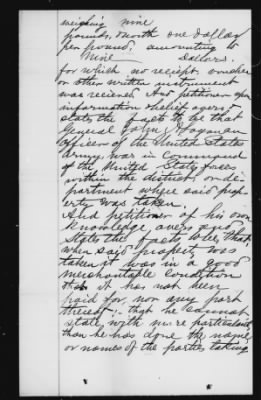 weighing nine
pounds, & worth one dollar
per pound, amounting to
Nine dollars.
for which no reciept voucher
or other written instrument
was recieved And petitioner upon
information & belief avers &
states the facts to be that
General John
Officer of the United States
Army, was in Command
of the United States forces
within the district, or de-
partment where said prop-
erty was taken.
And petitioner of his own
knowledge avers and
states the facts to be, that
when said property was
taken it was in a good
merchantable condition
that it has not been
paid for, nor any part
thereof;- that he cannot
state with more particularity
than he has done the name
or names of the parties taking